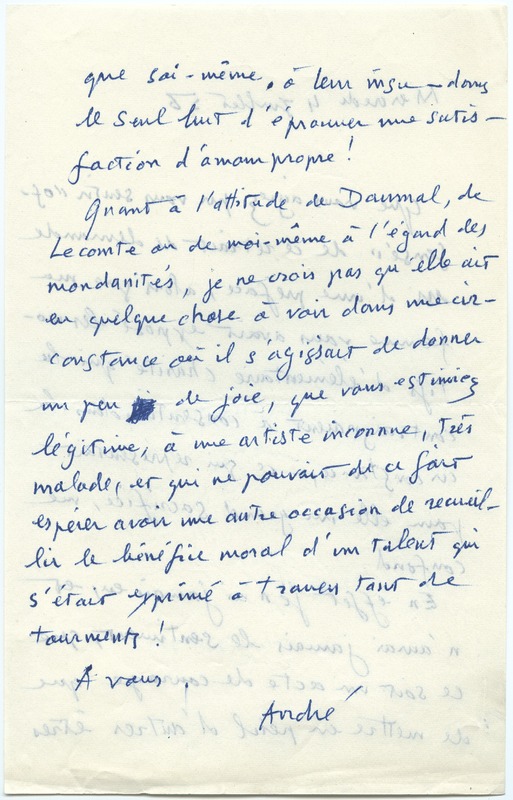 que soi-même, à leur insu - dans
le seul but d'éprouver une satis-
faction d'amour propre !
Quant à l'attitude de Daumal, de
Lecomte ou de moi-même à l'égard des
mondanités, je ne crois pas qu'elle ait
eu quelque chose à voir dans une cir-
constance où il s'agissait de donner
un peu de joie, que vous estimiez
légitime, à une artiste inconnue, très
malade, et qui ne pouvait de ce fait
espérer avoir une autre occasion de recueil-
lir le bénéfice moral d'un talent qui
s'était exprimé à travers tant de
tourments !
A vous.
André